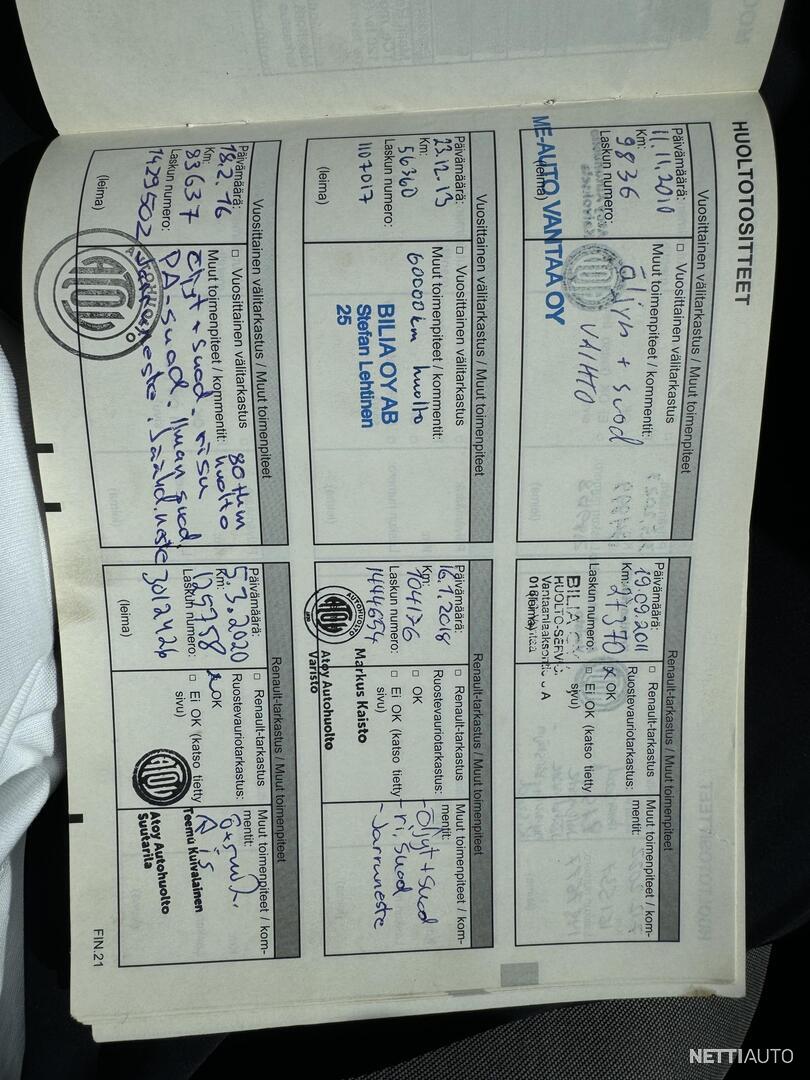 HUOLTOTOSITTEET
Vuosittainen välitarkastus / Muut toimenpiteet
Päivämäärä:
11.11.2010
Km:
9836
Laskun numero:
(leima)
ME-AUTO VANTAA OY
□ Vuosittainen välitarkastus
Muut toimenpiteet / kommentit:
Öljyn + suod
VAIHTO
Renault-tarkastus / Muut toimenpiteet
Päivämäärä:
19.09.2011
Km:
27370
Laskun numero:
BILIA OY
HUOLTO-SERVICE
(leima)
□ Renault-tarkastus
Ruostevauriotarkastus:
x OK
□ Ei OK (katso tietty
sivu)
Muut toimenpiteet / kom-
mentit:
Vuosittainen välitarkastus / Muut toimenpiteet
Päivämäärä:
23.12.13
Km:
56360
Laskun numero:
1107017
(leima)
□ Vuosittainen välitarkastus
Muut toimenpiteet / kommentit:
60000km huolto
BILIA OY AB
Stefan Lehtinen
25
Renault-tarkastus / Muut toimenpiteet
Päivämäärä:
16.1.2018
Km:
104176
Laskun numero:
1444654
AUTOHUOLTO
ATOY
Markus Kaisto
Atoy Autohuolto
Varisto
□ Renault-tarkastus
Ruostevauriotarkastus:
□ OK
□ Ei OK (katso tietty
sivu)
Muut toimenpiteet / kom-
mentit:
-Öljyt + suod
-ri.suod
-Jarruneste
Vuosittainen välitarkastus / Muut toimenpiteet
Päivämäärä:
18.2.16
Km:
83637
Laskun numero:
1429502
(leima)
ATOY
□ Vuosittainen välitarkastus
Muut toimenpiteet / kommentit:
80tkm
huolto
öljyt + suod.
PA-suod. ilman suod
Jarruneste. Jäähd.neste
Renault-tarkastus / Muut toimenpiteet
Päivämäärä:
5.3.2020
Km:
125758
Laskun numero:
3012426
(leima)
□ Renault-tarkastus
Ruostevauriotarkastus:
OK
□ Ei OK (katso tietty
sivu)
ATOY
Muut toimenpiteet / kom-
mentit:
Teemu Kuivalainen
Atoy Autohuolto
Suutarila
FIN.21
NETTIAUTO